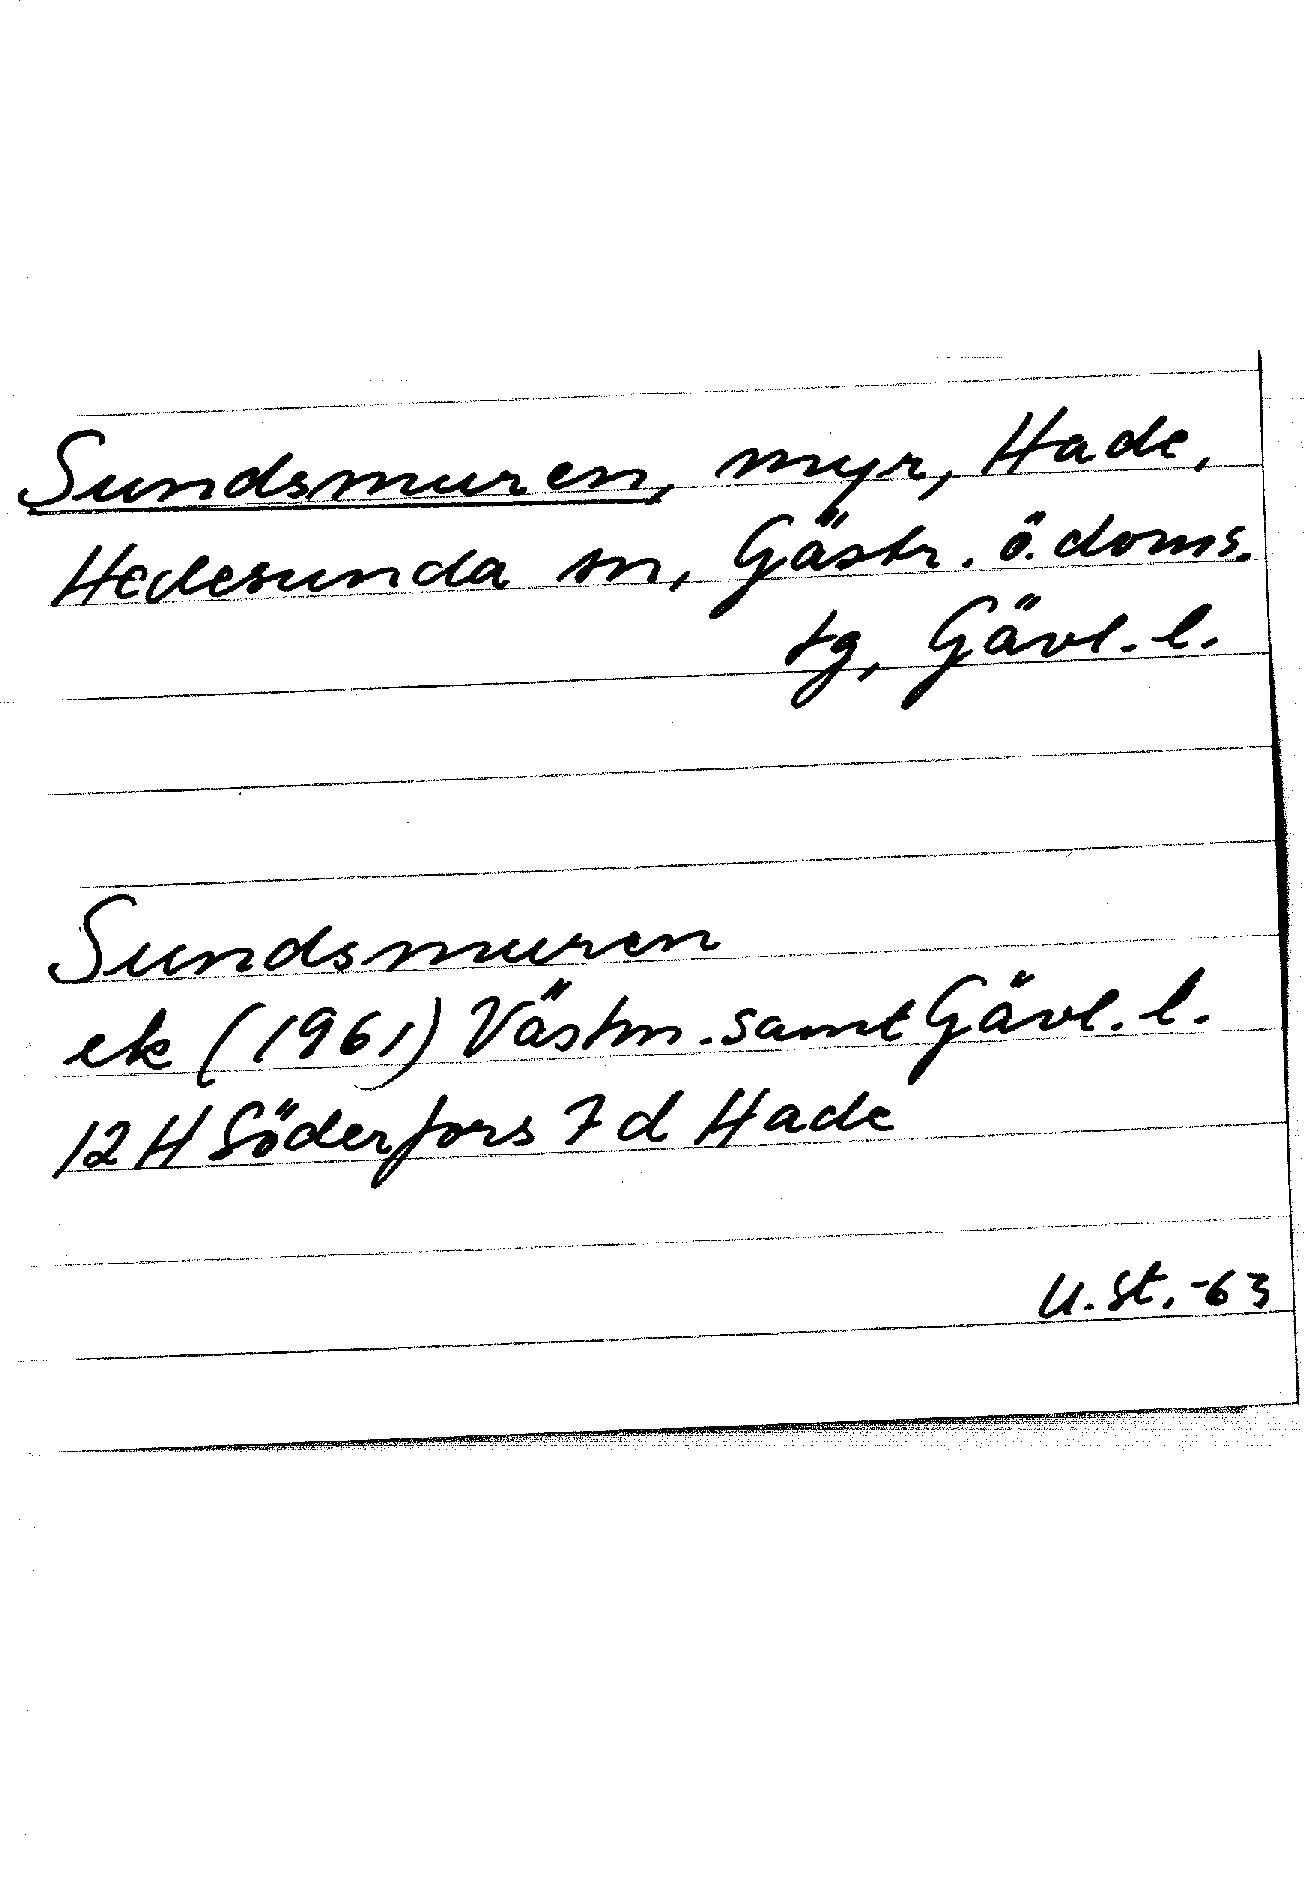 Sundsmuren, myr, Hade,
Hedesunda sn, Gästr. ö. doms.
tg, Gävl. l.
Sundsmuren
ek (1961) Västm. samt Gävl. l.
12 H Söderfors 7 d Hade
U. St. -63